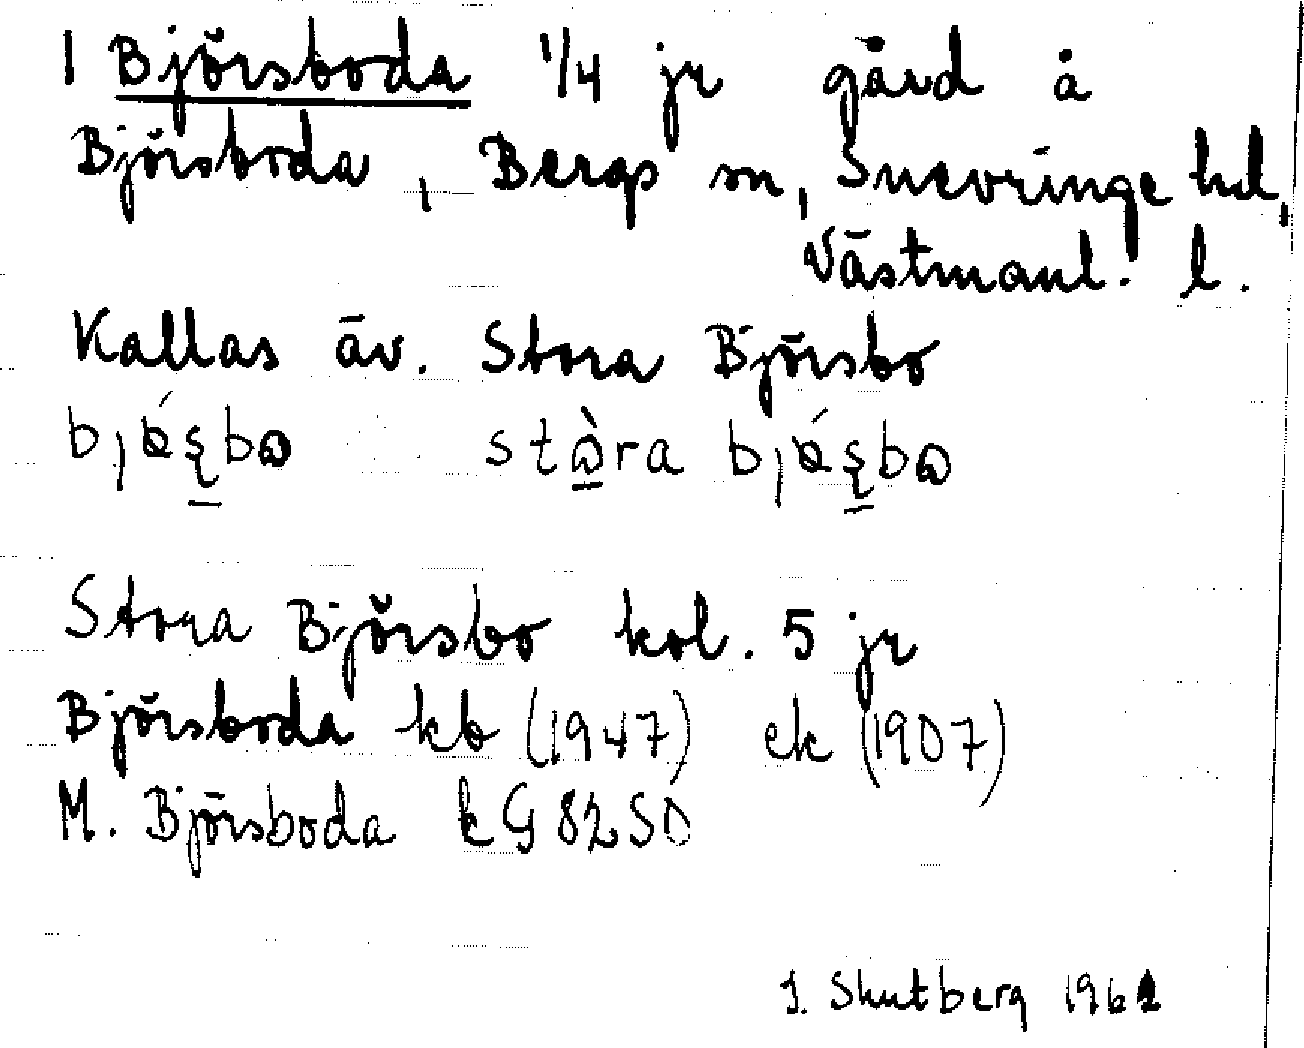 1 Björsboda 1/4 jr gård å
Björsboda, Bergs sn, Snevringe hd,
Västmanl. l.
Kallas äv. Stora Björsbo
Stora Björsbo kol. 5 jr
Björsboda kb (1947) ek (1907)
M. Björsboda kG 82 SO
J. Skutberg 1961